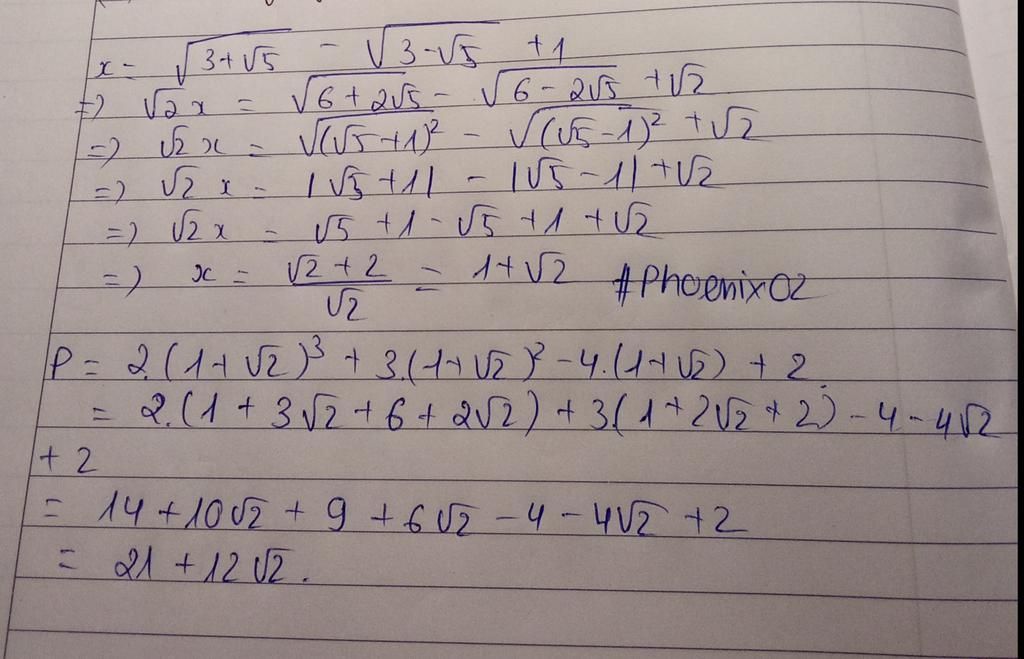 x = √(3+√5) - √(3-√5) + 1
=> √2 x = √(6+2√5) - √(6-2√5) + √2
=> √2 x = √((√5+1)²) - √((√5-1)²) + √2
=> √2 x = |√5+1| - |√5-1| + √2
=> √2 x = √5 + 1 - √5 + 1 + √2
=> x = (√2+2)/√2 = 1+√2 #Phoenix02
P = 2.(1+√2)³ + 3.(1+√2)² - 4.(1+√2) + 2.
= 2.(1 + 3√2 + 6 + 2√2) + 3(1+2√2+2) - 4 - 4√2
+ 2
= 14 + 10√2 + 9 + 6√2 - 4 - 4√2 + 2
= 21 + 12√2.